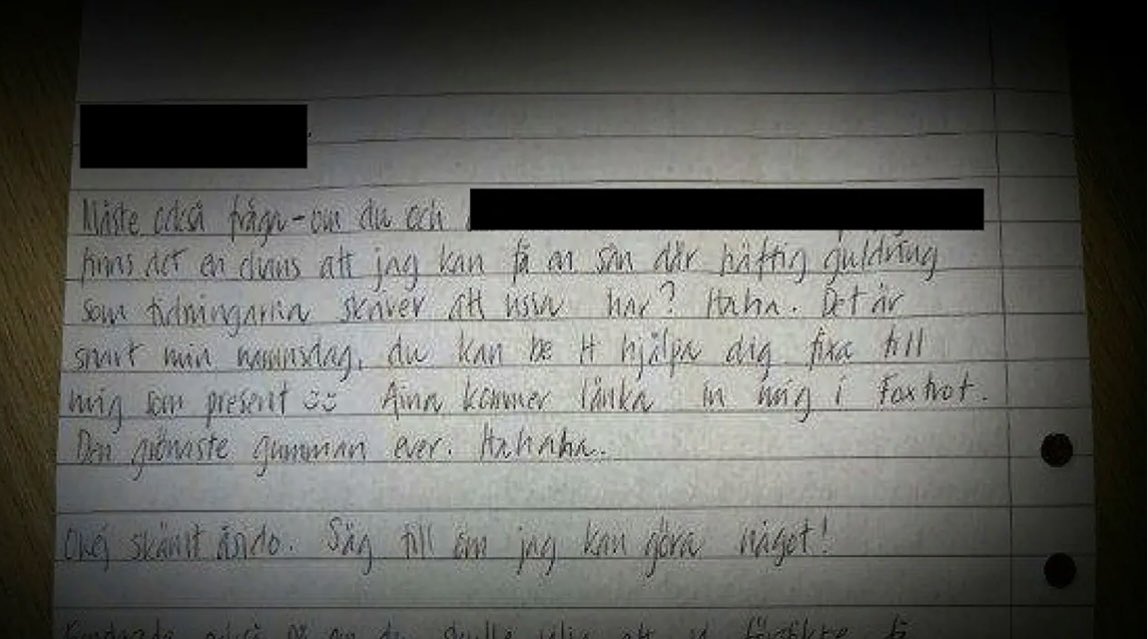 Måste också fråga - om du och
finns det en chans att jag kan få en sån där häftig guldring
som tidningarna skriver att vissa har? Haha. Det är
snart min namnsdag, du kan be H hjälpa dig fixa till
mig som present Aina kommer länka in mig i Foxtrot.
Den grönaste gumman ever. Hahaha.
Okej skämt åsido. Säg till om jag kan göra något!
också på om du skulle vilja att vi försökte få